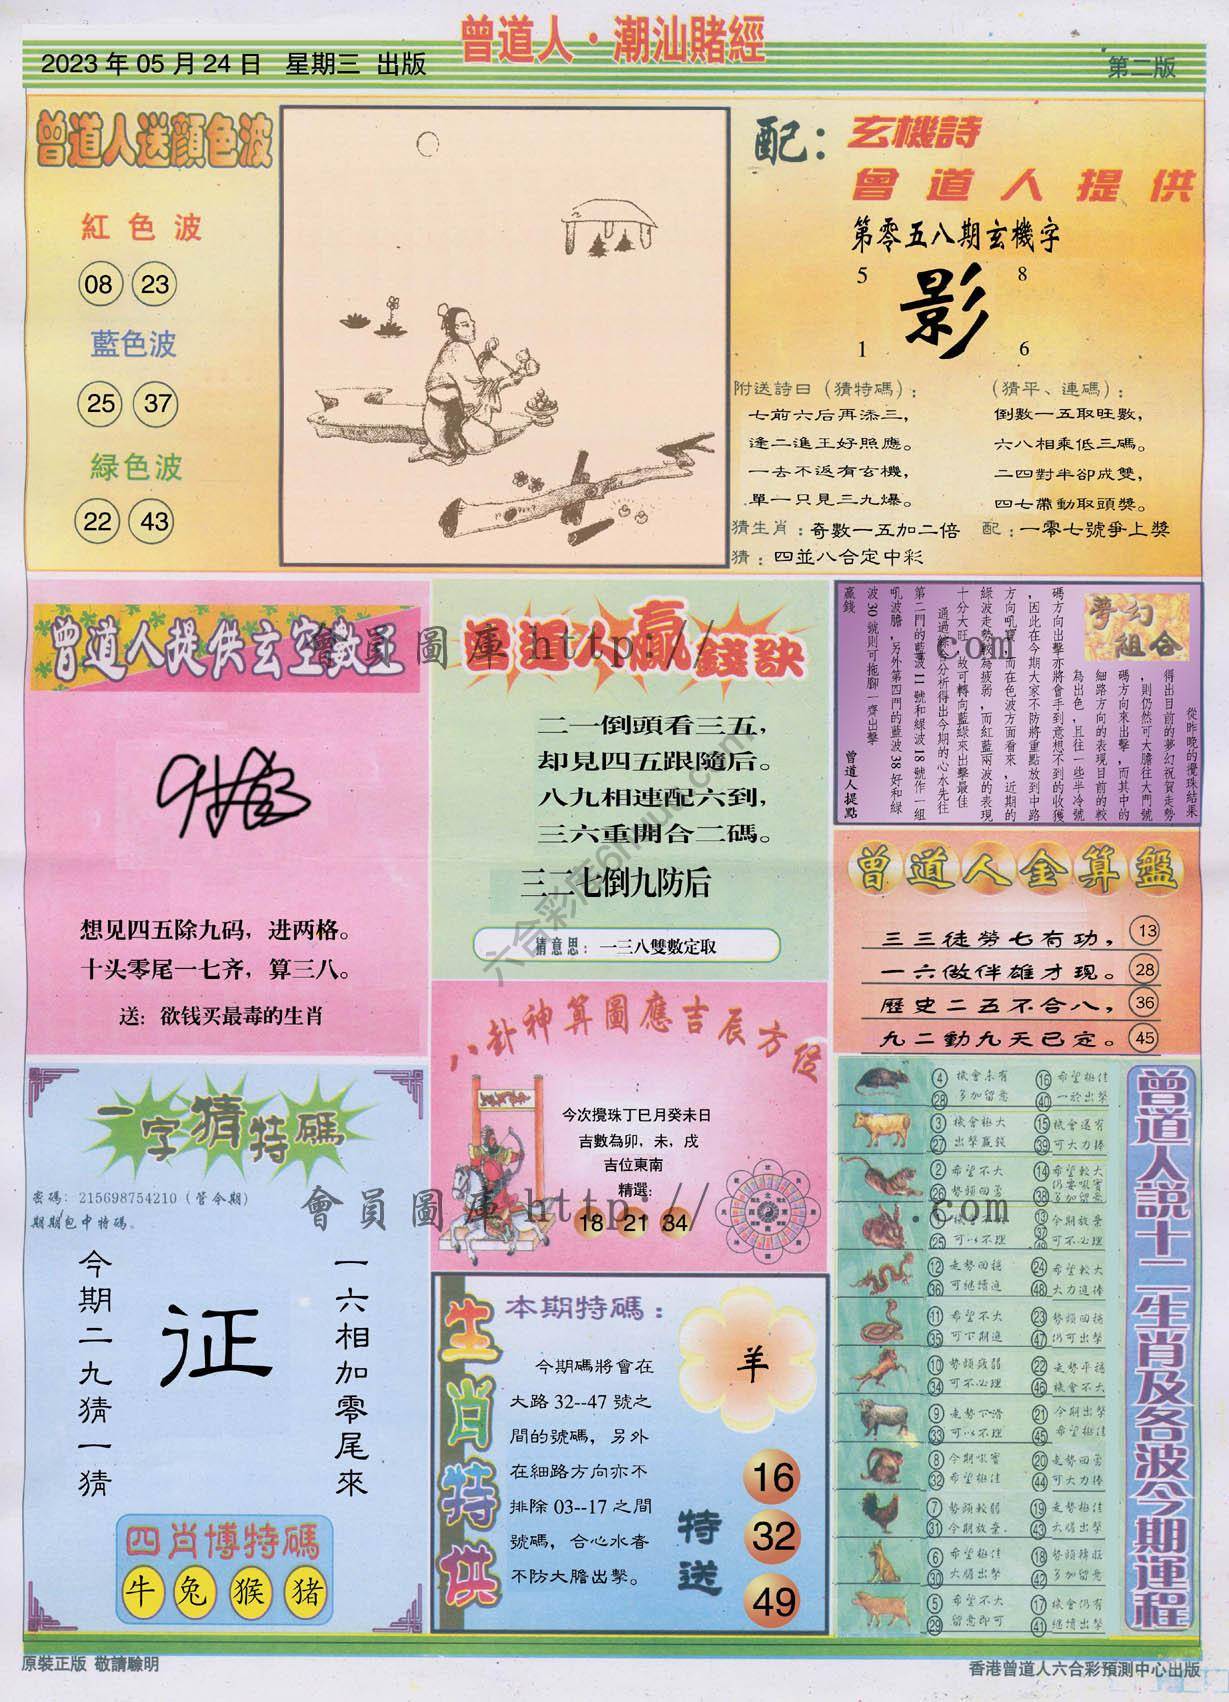 曾道人·潮汕賭經
2023 年 05 月 24 日 星期三 出版
第二版
曾道人送顏色波
紅色波
08 23
藍色波
25 37
緑色波
22 43
配：玄機詩
曾道人提供
第零五八期玄機字
5 8
影
1 6
附送詩曰（猜特碼）：
七前六后再添三，
逢二進王好照應。
一去不返有玄機，
單一只見三九爆。
（猜平、連碼）：
倒數一五取旺數，
六八相乘低三碼。
二四對半卻成雙，
四七帶動取頭獎。
猜生肖：奇數一五加二倍
配：一零七號爭上獎
猜：四並八合定中彩
曾道人提供玄空數王
想见四五除九码，进两格。
十头零尾一七齐，算三八。
送：欲钱买最毒的生肖
曾道人贏錢訣
二一倒頭看三五，
却見四五跟隨后。
八九相連配六到，
三六重開合二碼。
三二七倒九防后
猜意思：一三八雙數定取
會員圖庫 http:// .com
六合彩库6huu.com
夢幻組合
從昨晚的攪珠結果
得出目前的夢幻祝賀走勢
，則仍然可大膽往大門號
碼方向來出擊，而其中的
細路方向的表現目前的較
為出色，且往一些半冷號
碼方向出擊亦將會手到意想不到的收獲
，因此在今期大家不防將重點放到中路
方向吼寶，而在色波方面看來，近期的
綠波走勢較為疲弱，而紅藍兩波的表現
十分大旺，故可轉向藍綠來出擊最佳
通過綜合分析得出今期的心水先往
第二門的藍波 11 號和綠波 18 號作一組
吼波膽，另外第四門的藍波 38 好和綠
波 30 號則可拖腳一齊出擊
贏錢
曾道人提點
曾道人金算盤
三三徒勞七有功， 13
一六做伴雄才現。 28
歷史二五不合八， 36
九二動九天已定。 45
八卦神算圖應吉辰方位
今次攪珠丁巳月癸未日
吉數為卯，未，戌
吉位東南
精選：
18 21 34
一字猜特碼
密碼：215698754210（管今期）
期期包中特碼。
今期二九猜一猜
征
一六相加零尾來
四肖博特碼
牛 兔 猴 猪
會員圖庫 http:// .com
生肖特供
本期特碼：
今期碼將會在
大路 32--47 號之
間的號碼，另外
在細路方向亦不
排除 03--17 之間
號碼，合心水者
不防大膽出擊。
羊
特送
16
32
49
曾道人説十二生肖及各波今期運程
4 機會未有 16 希望極佳
28 多加留意 40 一於出擊
3 機會極大 15 機會還有
27 出擊贏錢 39 可大力捧
2 希望不大 14 希望較大
仍要吼實
26 勢頭回勇 38 多加留意
13 今期放棄
25 可以不理 37 可不必理
12 走勢回穩 24 希望較大
36 可繼續追 48 大力追捧
11 希望不大 23 勢頭回穩
35 可下期追 47 仍可出擊
10 勢頭疲弱 22 走勢平穩
34 可不必理 46 機會不大
9 走勢下滑 21 今期出擊
33 可以不理 45 希望極佳
8 今期吼實 20 走勢回勇
32 希望極佳 44 可大力捧
7 勢頭較弱 19 走勢極佳
31 今期放棄. 43 大膽出擊
6 希望極佳 18 勢頭轉旺
30 大膽出擊 42 多加留意
5 希望不大 17 機會仍有
29 留意即可 41 繼續出擊
原裝正版 敬請驗明
香港曾道人六合彩預測中心出版